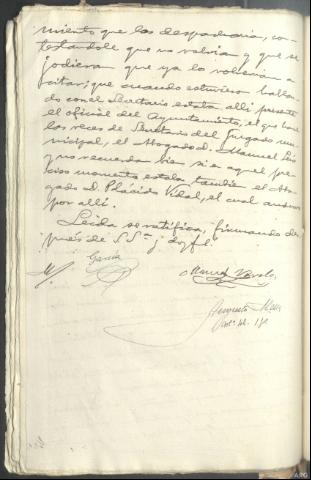 miento que los despacharia, con-
testandole que no volvia y que se
jodieran que ya lo volverian a
citar; que cuando estuviero hablan
do con el Secretario estaba alli presente
el oficial del Ayuntamiento, el que hace
las veces de Secretario del Juzgado mu-
nicipal, el Abogado D. Manuel
y no recuerda bien si en aquel pre-
ciso momento estaba tambien el Abo-
gado D. Plácido Vidal, el cual anduvo
por alli.
Leida se ratifica, firmando des-
pués de SSª y doy fé.
García
Manuel Varela